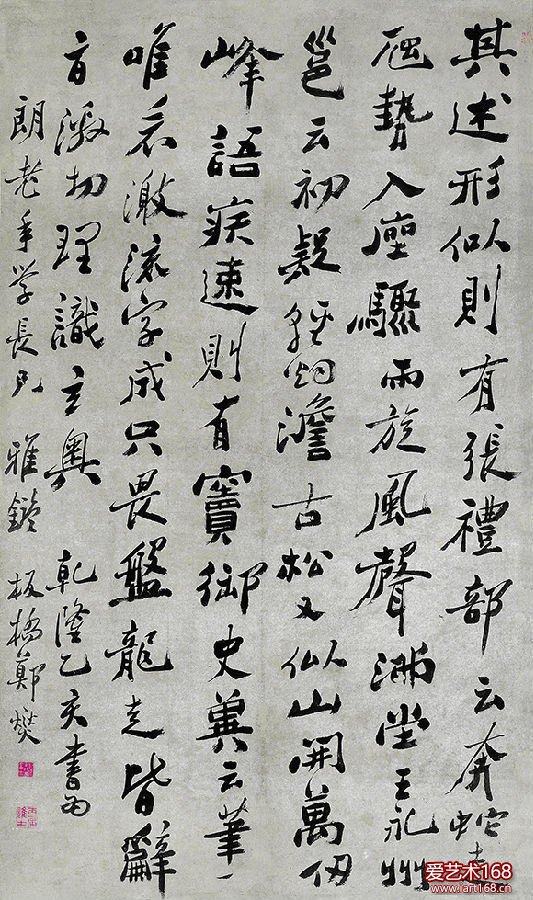 其述形似則有張禮部云奔蛇走
虺勢入座驟雨旋風聲滿堂王永州
邕云初疑輕烟澹古松又似山開萬仞
峰語疾速則有竇御史冀云筆下
唯看激流字成只畏盤龍走皆辭
旨激切理識玄奧 乾隆乙亥書為
朗老年學長兄 雅鑒 板橋鄭燮
爱艺术168
www.iart168.cn